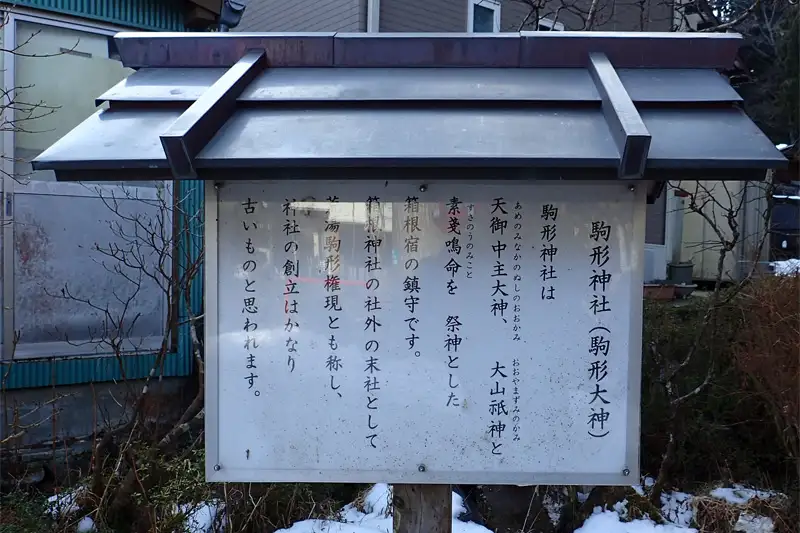 駒形神社（駒形大神）
駒形神社は
あめのみなかのぬしのおおかみ おおやまずみのかみ
天御中主大神、 大山祇神と
すさのうのみこと
素戔鳴命を 祭神とした
箱根宿の鎮守です。
箱根神社の社外の末社として
湯駒形権現とも称し、
社の創立はかなり
古いものと思われます。